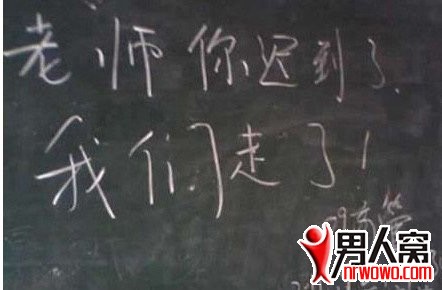 老师你迟到了.
我们走了!
男人窝
nrwowo.com